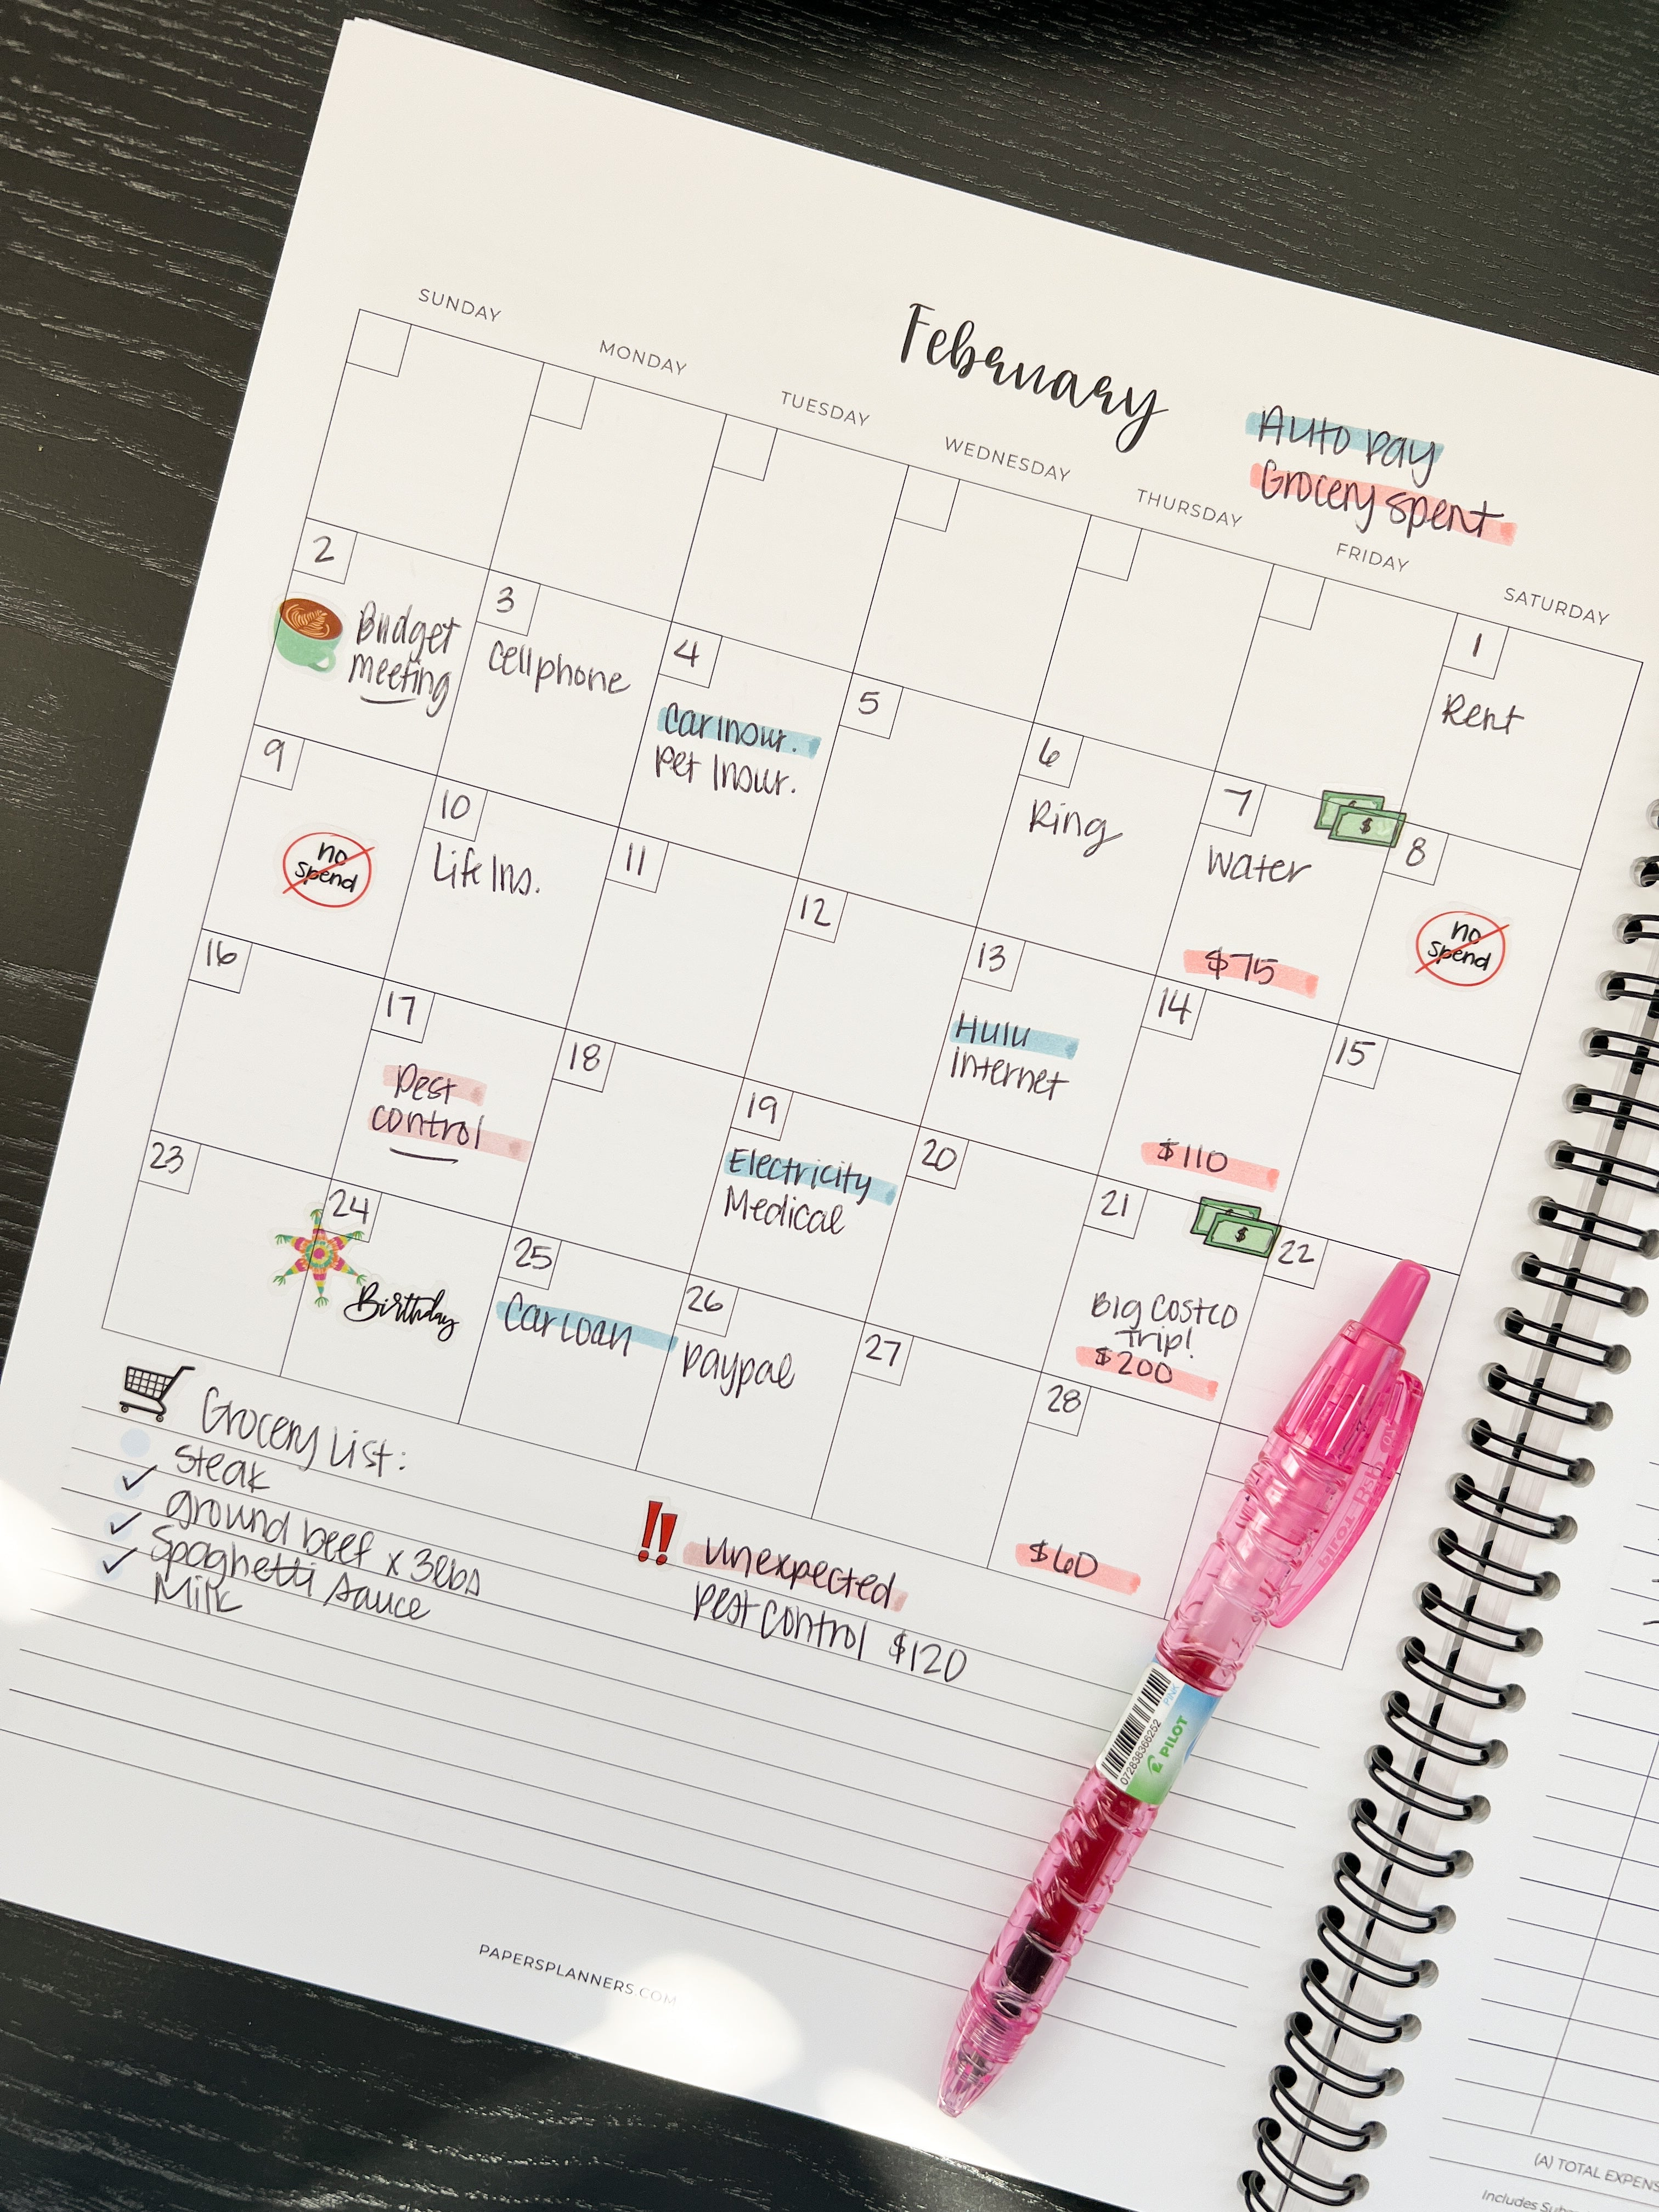 February
Auto pay
Grocery spent
SUNDAY
MONDAY
TUESDAY
WEDNESDAY
THURSDAY
FRIDAY
SATURDAY
1
Rent
2
Budget
meeting
3
Cell phone
4
Car insur.
Pet Insur.
5
6
Ring
7
Water
$75
8
no
spend
9
no
spend
10
Life Ins.
11
12
13
Hulu
internet
14
$110
15
16
17
Pest
control
18
19
Electricity
Medical
20
21
Big Costco
Trip!
$200
22
23
24
Birthday
25
Car Loan
26
paypal
27
28
$60
Grocery List:
steak
ground beef x 3lbs
Spaghetti sauce
Milk
!! unexpected
pest control $120
PILOT
PINK
072838366252
PAPERSPLANNERS.COM
(A) TOTAL EXPENS